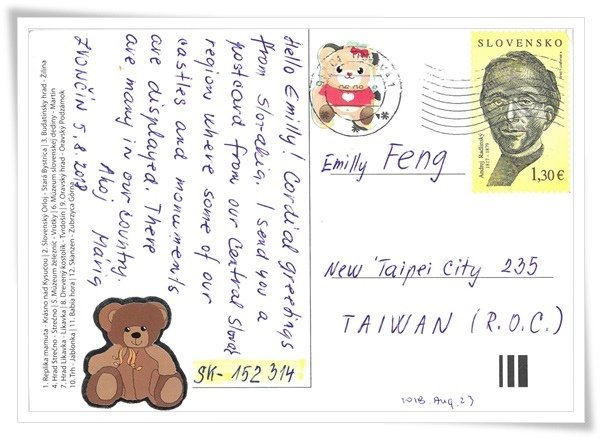 Hello Emilly! Cordial greetings
from Slovakia. I send you a
postcard from our Central Slovak
region where some of our
castles and monuments
are displayed. There
are many in our country.
Ahoj Mária
ZVONČÍN 5.8.2018
1. Replika mamuta - Krásno nad Kysucou | 2. Slovenský Orloj - Stará Bystrica | 3. Budatínsky hrad - Žilina
4. Hrad Strečno - Strečno | 5. Múzeum železníc - Vrútky | 6. Múzeum slovenskej dediny - Martin
7. Hrad Likavka - Likavka | 8. Drevený kostolík - Tvrdošín | 9. Oravský hrad - Oravský Podzámok
10. Trh - Jablonka | 11. Babia hora | 12. Skanzen - Zubrzyca Górna
SK-152 314
SLOVENSKO
Andrej Radlinský
1817 - 1879
1,30 €
Emilly Feng
New Taipei City 235
TAIWAN (R.O.C.)
1018. Aug. 23